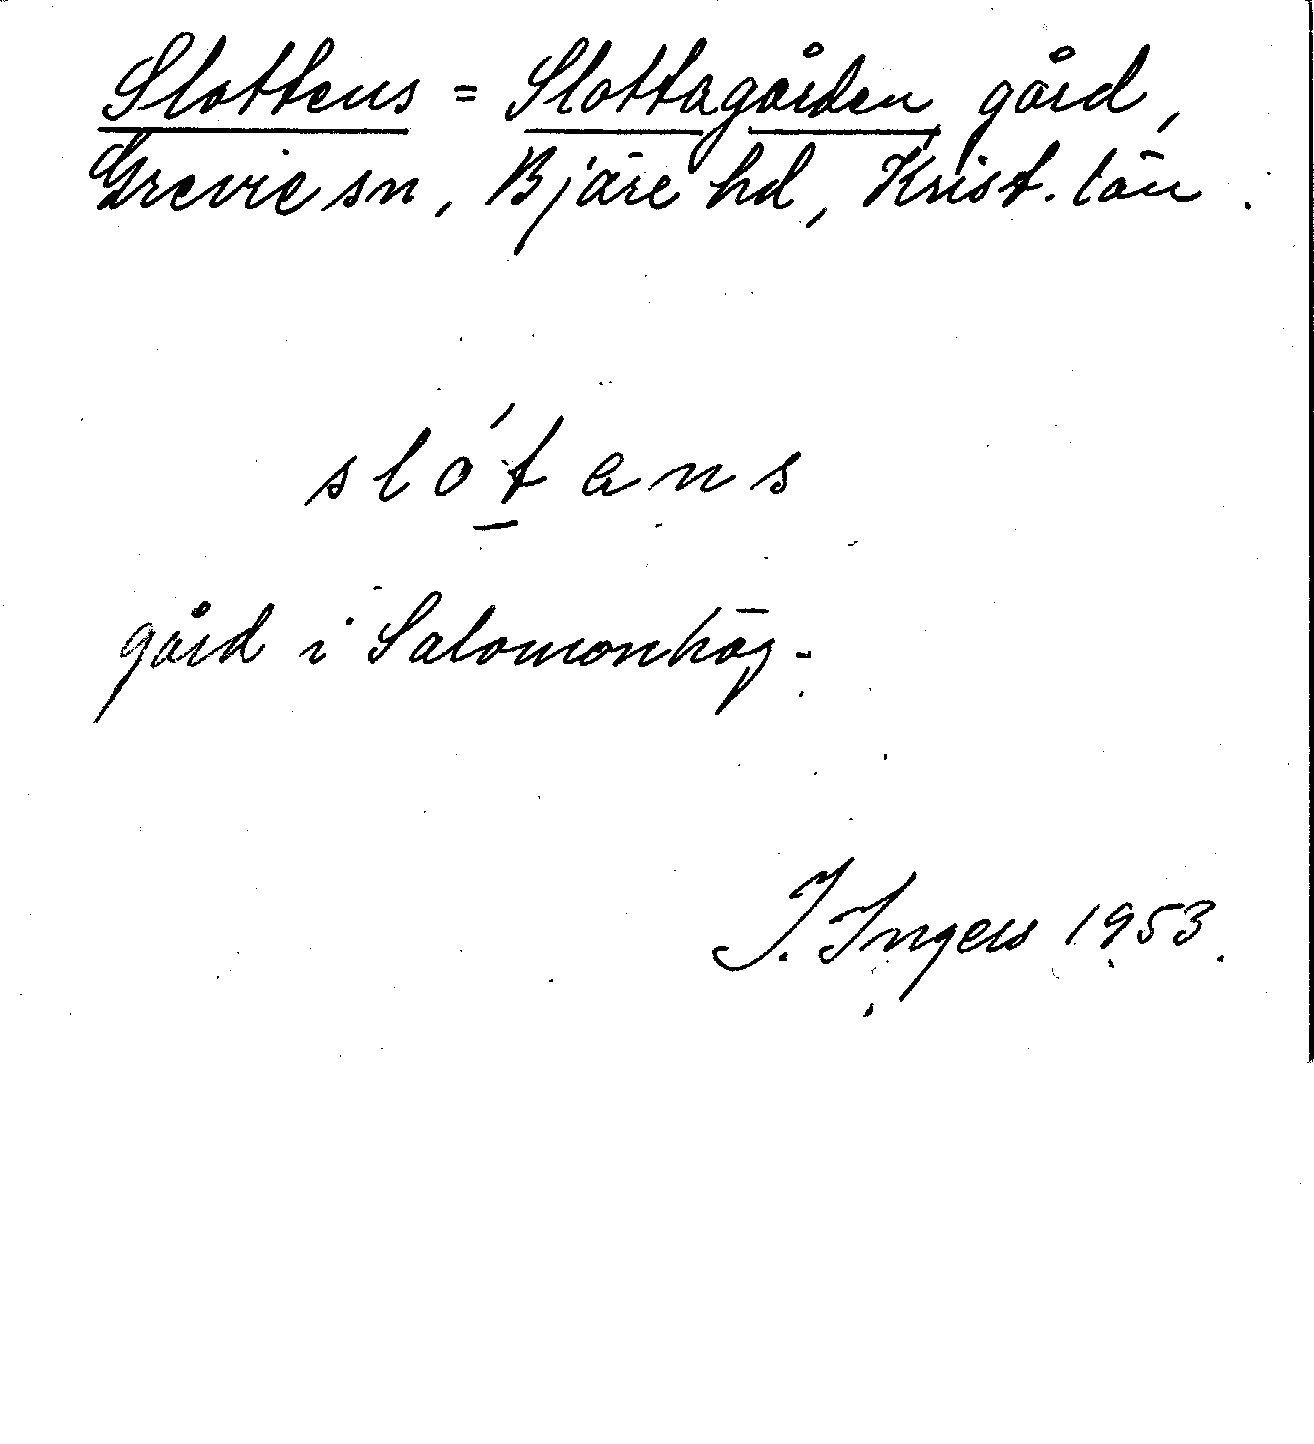 Slottens = Slottagården gård,
Grevie sn, Bjäre hd, Krist. län.
slót ans
gård i Salomonhög.
I. Ingers 1953.